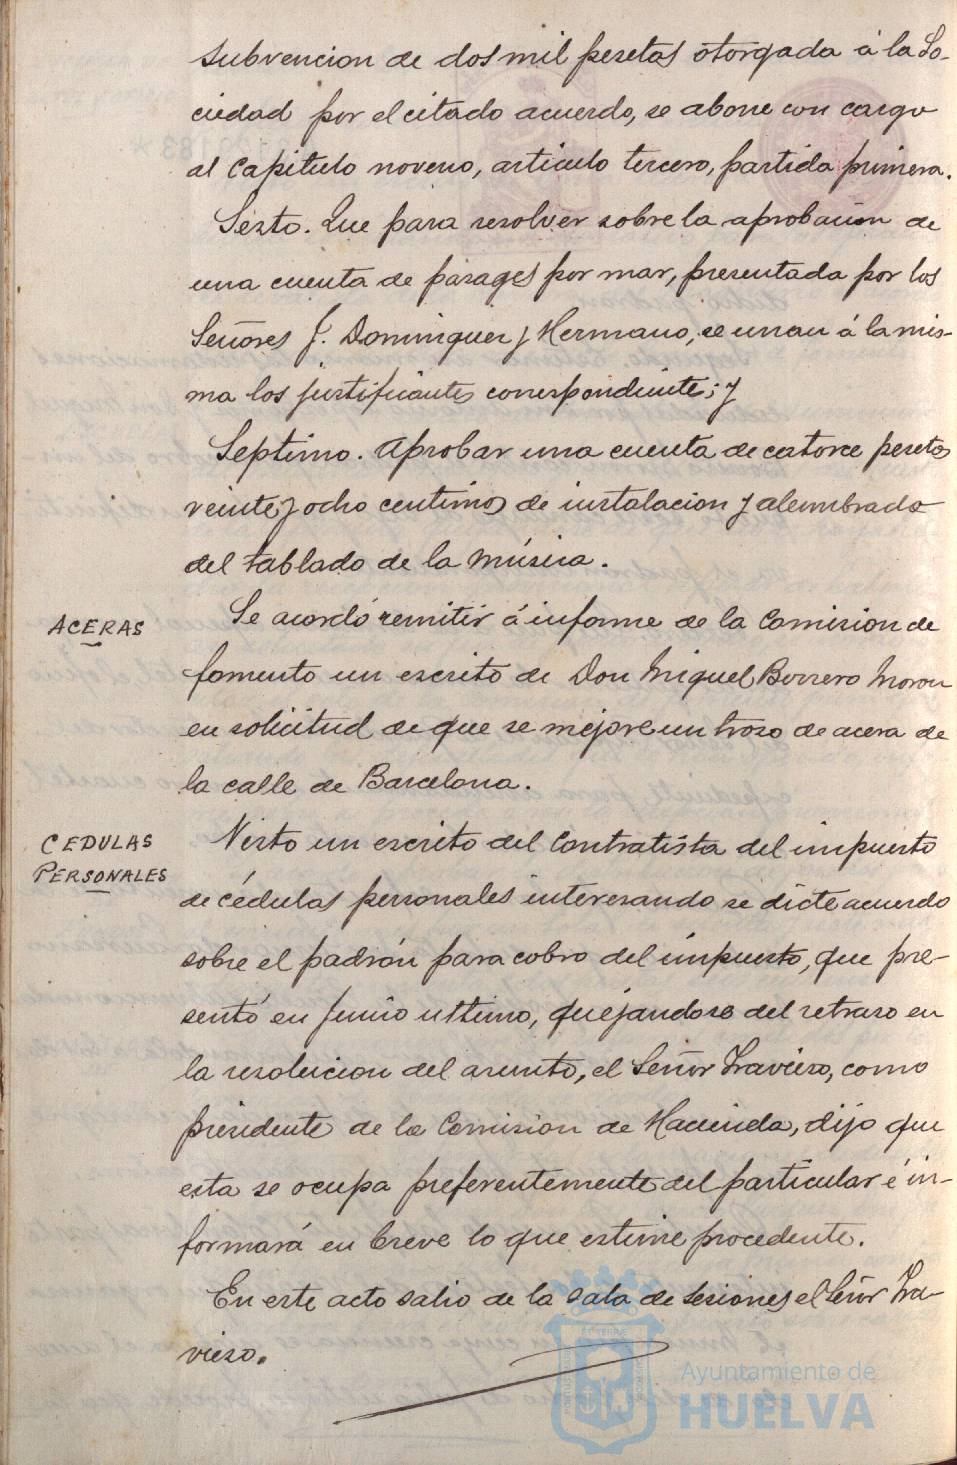 subvencion de dos mil pesetas otorgada á la So-
ciedad por el citado acuerdo, se abone con cargo
al Capitulo noveno, articulo tercero, partida primera.
Sexto. Que para resolver sobre la aprobacion de
una cuenta de pasages por mar, presentada por los
Señores J. Dominguez y Hermano, se unan á la mis-
ma los justificantes correspondientes; y
Septimo. Aprobar una cuenta de catorce pesetas
veinte y ocho centimos de instalacion y alumbrado
del tablado de la música.
ACERAS
Se acordó remitir á informe de la Comision de
fomento un escrito de Don Miguel Borrero Moron
en solicitud de que se mejore un trozo de acera de
la calle de Barcelona.
CEDULAS
PERSONALES
Visto un escrito del Contratista del impuesto
de cédulas personales interesando se dicte acuerdo
sobre el padrón para cobro del impuesto, que pre-
sentó en Junio ultimo, quejandose del retraso en
la resolucion del asunto, el Señor Travieso, como
presidente de la Comision de Hacienda, dijo que
esta se ocupa preferentemente del particular é in-
formará en breve lo que estime procedente.
En este acto salio de la sala de sesiones el Señor Tra-
vieso.
Ayuntamiento de
HUELVA